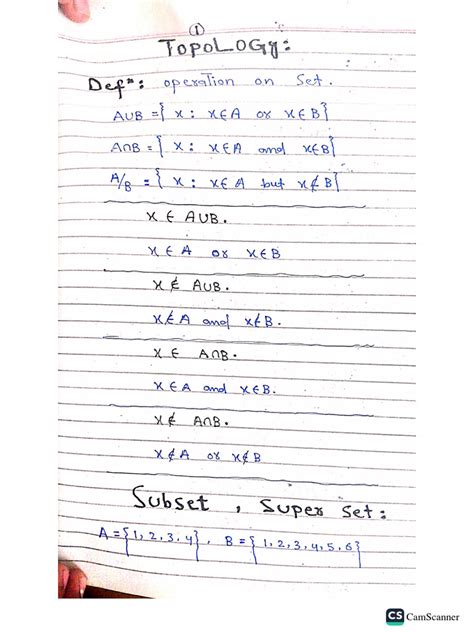 ①
TOPOLOGY:
Defⁿ: operation on Set.
A∪B = { x : x∈A or x∈B}
A∩B = { x : x∈A and x∈B}
A/B = { x : x∈A but x∉B}
x ∈ A∪B.
x ∈ A or x∈B
x ∉ A∪B.
x∉A and x∉B.
x ∈ A∩B.
x∈A and x∈B.
x∉ A∩B.
x∉A or x∉B
Subset , Super Set:
A={1,2,3,4}, B={1,2,3,4,5,6}
CS CamScanner